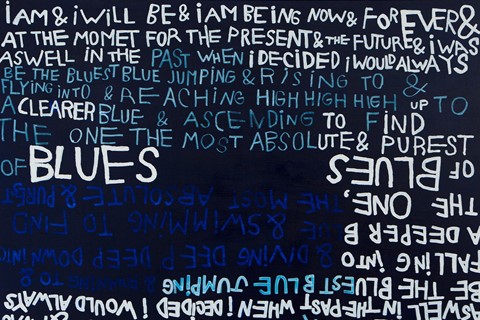 iAM & iWiLL BE & iAM BEING NOW & FOR EVER &
AT THE MOMET FOR THE PRESENT & THE FUTURE & i WAS
ASWELL IN THE PAST WHEN i DECIDED i WOULD ALWAYS
BE THE BLUEST BLUE JUMPING & RISING TO &
FLYING INTO & REACHING HIGH HIGH HIGH UP TO
A CLEARER BLUE & ASCENDING TO FIND
THE ONE THE MOST ABSOLUTE & PUREST
OF BLUES
ASWELL IN THE PAST WHEN i DECIDED i WOULD ALWAYS
BE THE BLUEST BLUE JUMPING
FALLING INTO & DIVING DEEP DEEP DOWN INTO
A DEEPER B & SWIMMING TO FIND
THE ONE, THE MOST ABSOLUTE & PUREST
OF BLUES